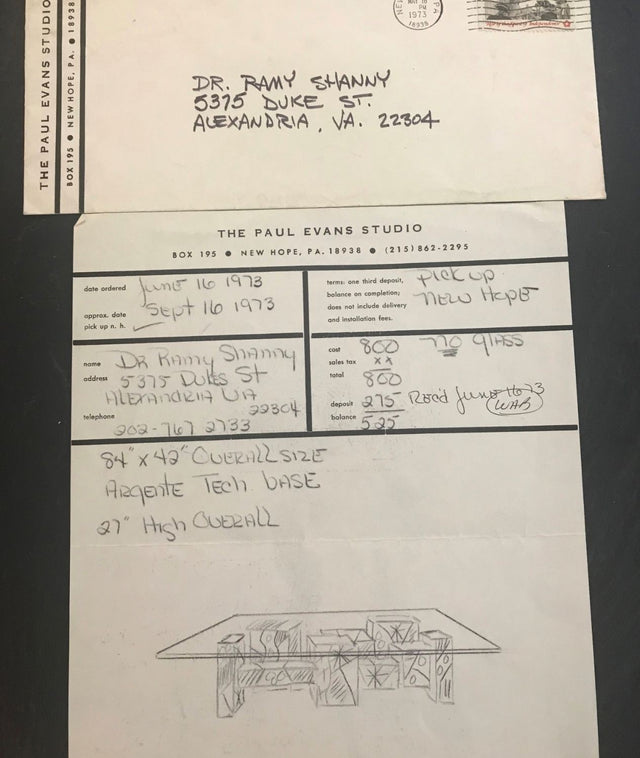 THE PAUL EVANS STUDIO
BOX 195 ● NEW HOPE, PA. ● 18938
PM
1973
18938
DR. RAMY SHANNY
5375 DUKE ST.
ALEXANDRIA, VA. 22304
THE PAUL EVANS STUDIO
BOX 195 ● NEW HOPE, PA. 18938 ● (215) 862-2295
date ordered June 16 1973
approx. date Sept 16 1973
pick up n. h. ✓
terms: one third deposit, Pick up
balance on completion; New Hope
does not include delivery
and installation fees.
name DR Ramy Shanny
address 5375 Dukes St
ALEXANDRIA VA
22304
telephone 202-767 2733
cost 800 no glass
sales tax xx
total 800
deposit 275 Rec'd June 16 73
WAB
balance 525
84" x 42" OVERALL SIZE
ARgente Tech. BASE
27" High OVERALL